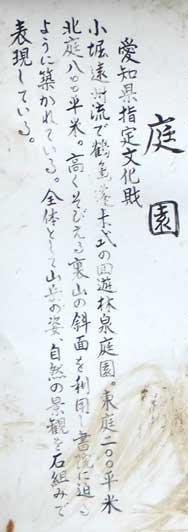 庭園
愛知県指定文化財
小堀遠州流で鶴亀蓬莱式の回遊林泉庭園。東庭二〇〇平米
北庭八〇〇平米。高くそびえる裏山の斜面を利用し書院に迫る
ように築かれている。全体として山岳の姿、自然の景観を石組みで
表現している。